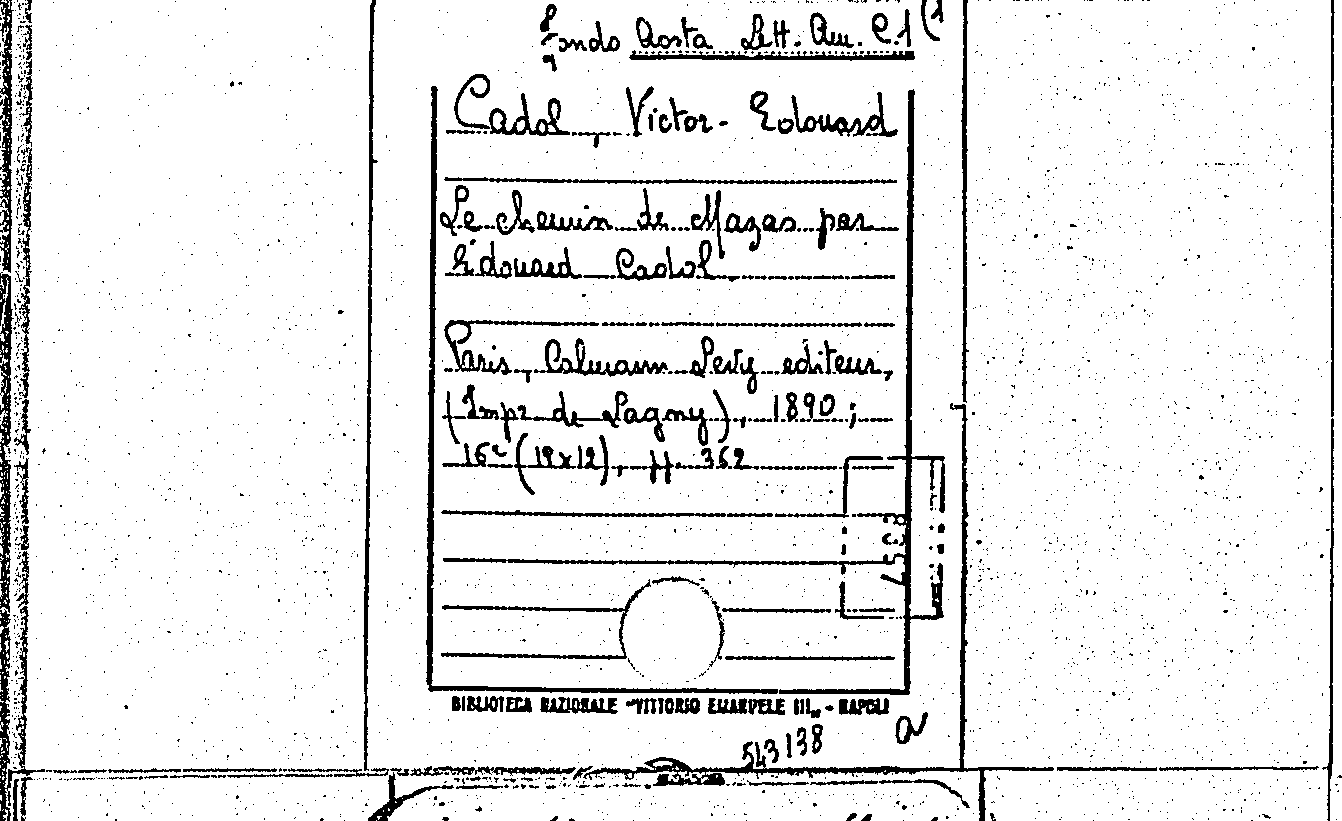 Fondo Aosta Lett. Am. C.1 (1
Cadol, Victor-Edouard
Le chemin de Mazas par
Edouard Cadol
Paris, Calmann Levy editeur,
(Impr. de Lagny), 1890;
16° (19x12), pp. 362
BIBLIOTECA NAZIONALE "VITTORIO EMANUELE III" - NAPOLI
543138